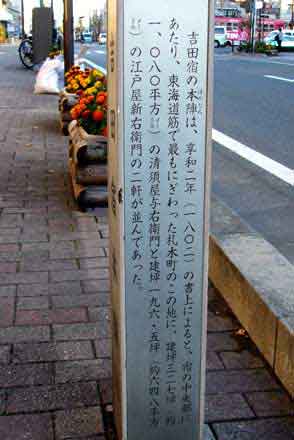 吉田宿の本陣は、享和二年(一八〇二)の書上によると、宿の中央部に
あたり、東海道筋で最もにぎわった札木町のこの地に、建坪三二七坪(約
一、〇八〇平方㍍)の清須屋与右衛門と建坪一九六・五坪(約六四八平方
㍍)の江戸屋新右衛門の二軒が並んであった。